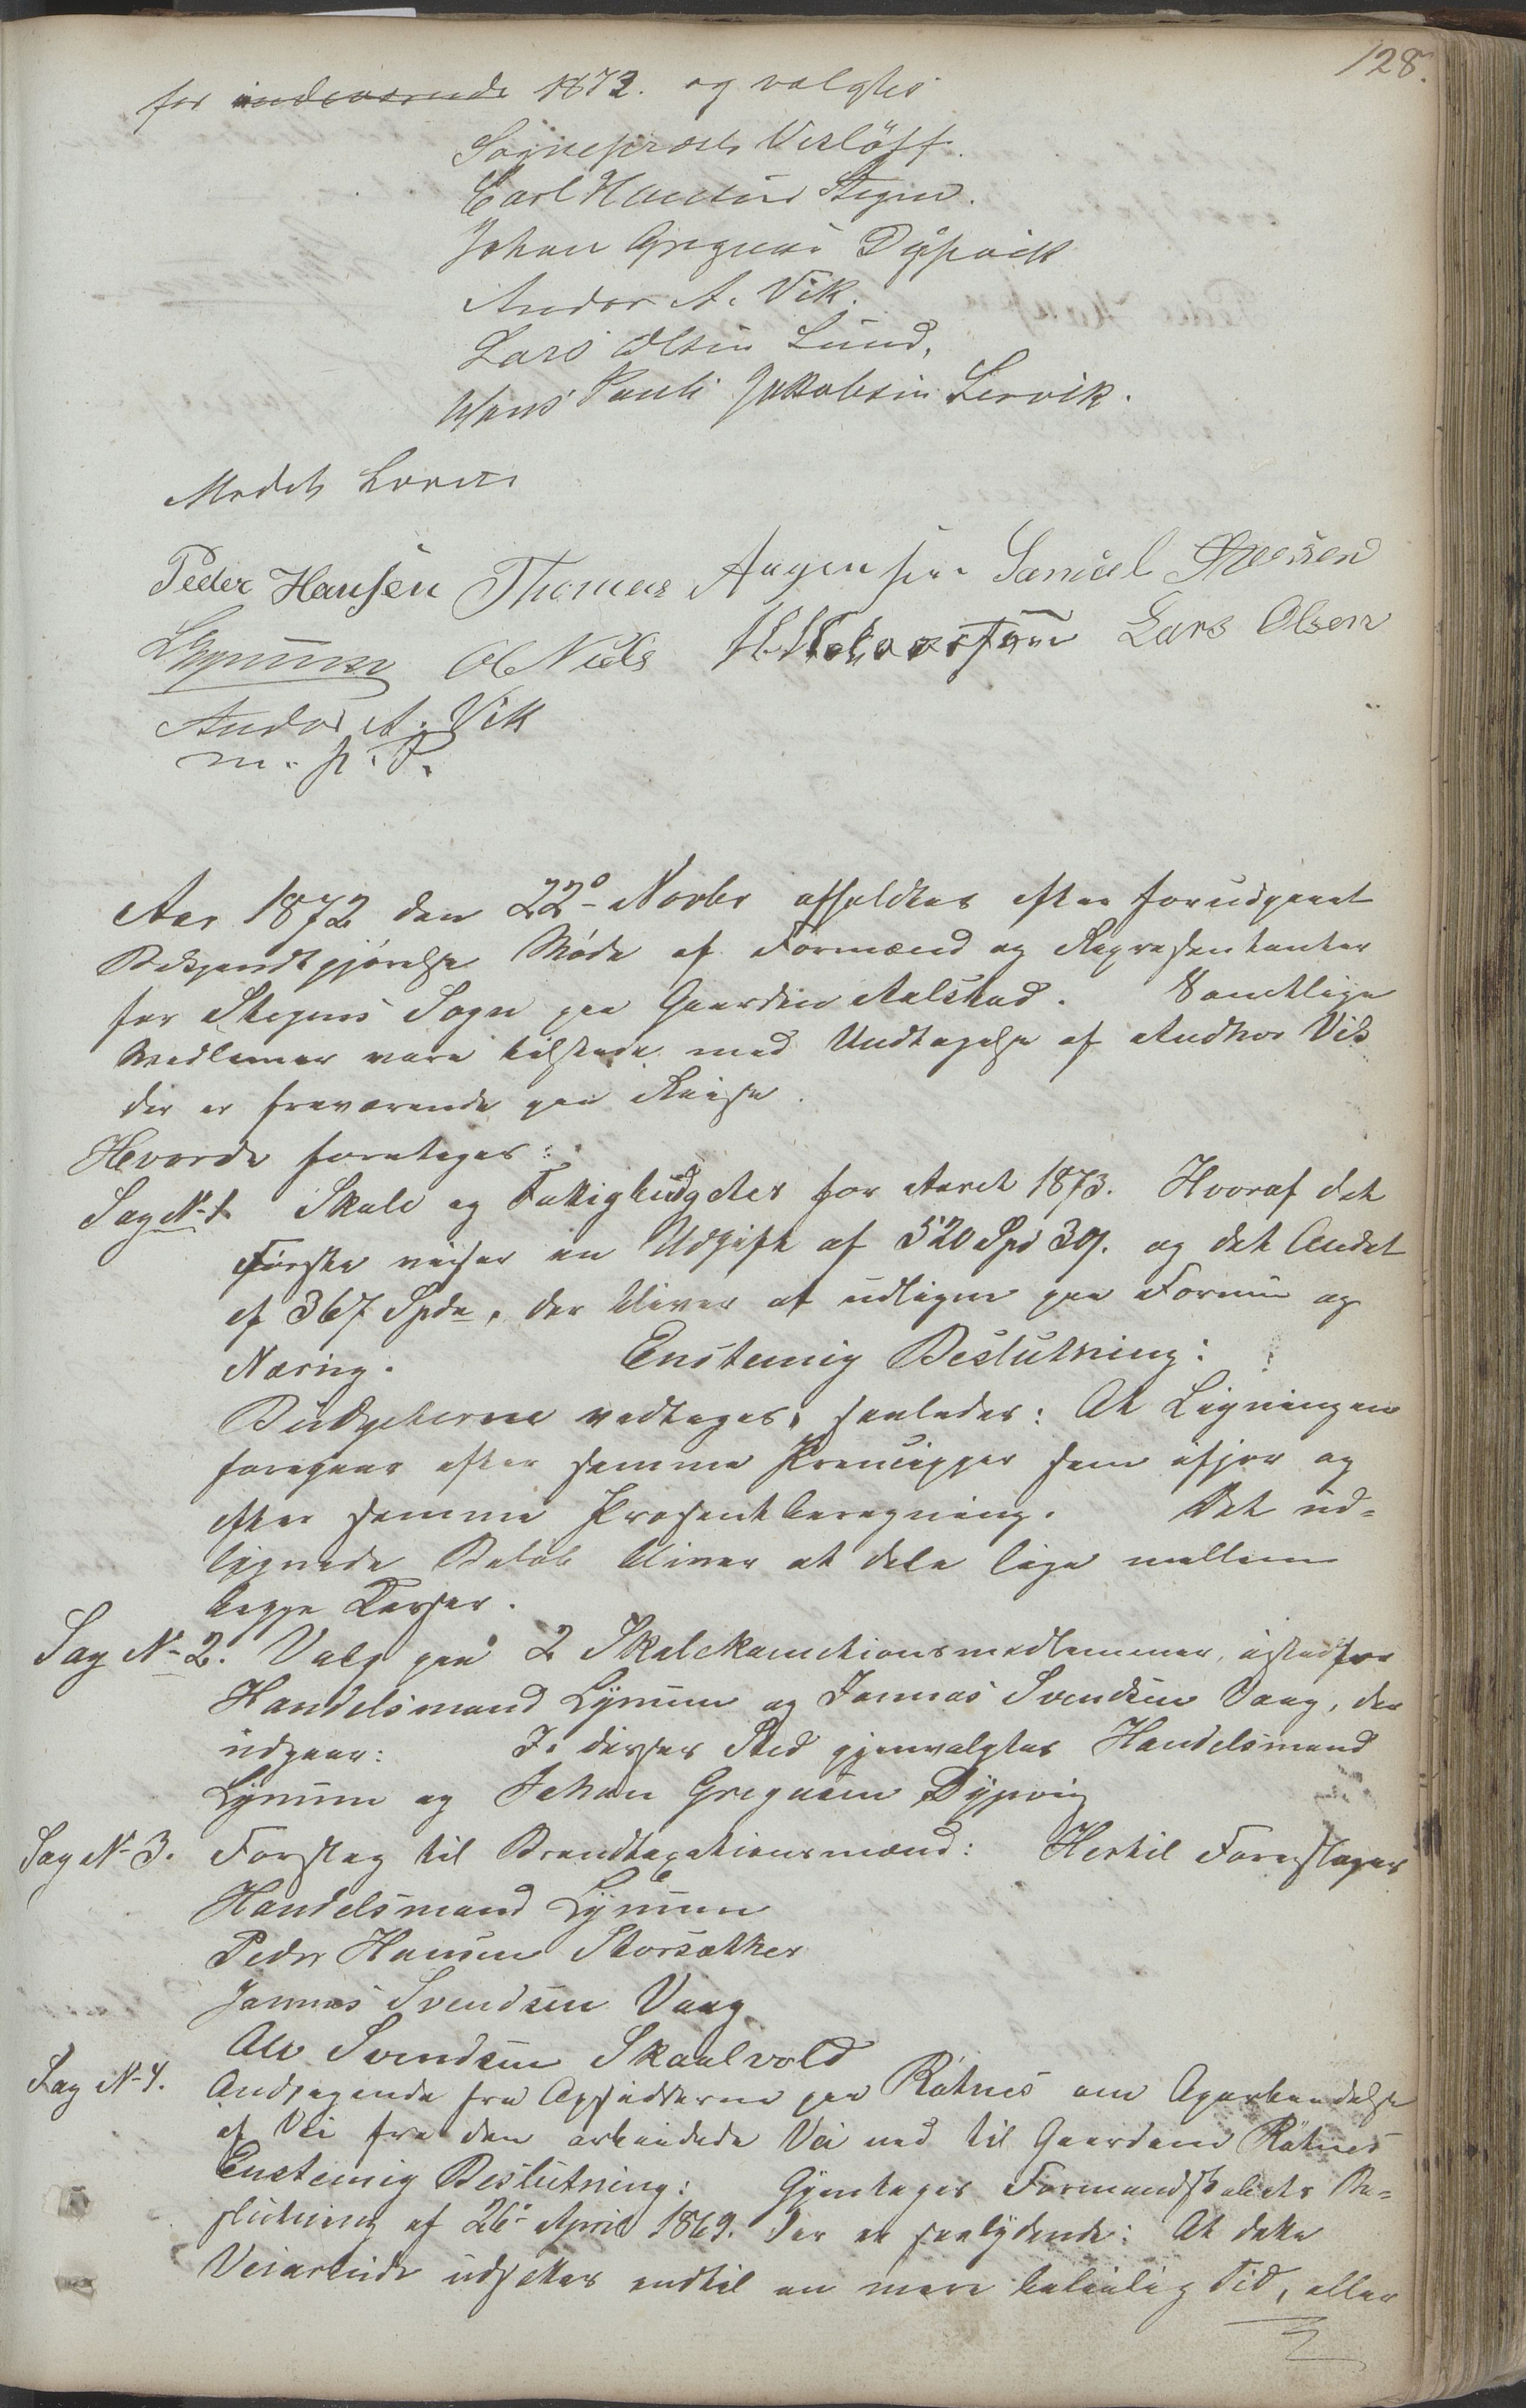 128.
for indeværende 1872. og valgtes
Sogneprest Visløff.
Carl Stegen.
Johan Gregusen Dypvik
Andor A. Vik.
Lars Olsen Lund,
Hans Pauli Jakobsen Lervik.
Mødet hævet
Peder Hansen Thomas Aagensen Samuel
Lynum Ol Niels Lars Olsen
Andor A. Vik
m. p. P.
Aar 1872 den 22º Novbr afholdtes efter forudgaaet
Bekjendtgjørelse Møde af Formænd og Repræsentanter
for Stegens Sogn paa Gaarden Aalstad. Samtlige
Medlemer vare tilstede med Undtagelse af Andhor Vik
der er fraværende paa Reise.
Hvorda foretoges:
Sag N-1 Skole og Fattigbudgetet for Aaret 1873. Hvoraf det
Første viser en Udgift af 520 Spd 39. og det Andet
af 367 Spd, der bliver at udligne paa Formue og
Næring. Enstemig Beslutning:
Budgeterne vedtages, saaledes: At Ligningen
foregaar efter samme Prencipper som ifjor og
efter samme Prosentberegning. Det ud-
lignede Beløb bliver at dele lige mellem
begge Kasser.
Sag N-2. Valg paa 2 Skolekomitionsmedlemmer, istedfor
Handelsmand Lynum og Jannas Svendsen Vaag, der
udgaar: I disses Sted gjenvalgtes Handelsmand
Lynum og Johan Gregusen Dypvig
Sag N-3. Forslag til Brandtaxationsmænd: Hertil Foreslages
Handelsmand Lynum
Peder Hansen Storsætter
Jannas Svendsen Vaag
Ole Svendsen Skaalvold
Sag N-4. Andragende fra Opsidderne paa Røtnes om Oparbeidelse
af Vei fra den arbeidede Vei ned til Gaardene Røtnes
Enstemig Beslutning: Gjentages Formandskabets Be-
slutning af 26º April 1869. der er saalydende: At dette
Veiarbeide udsettes indtil en mere beleilig Tid, eller